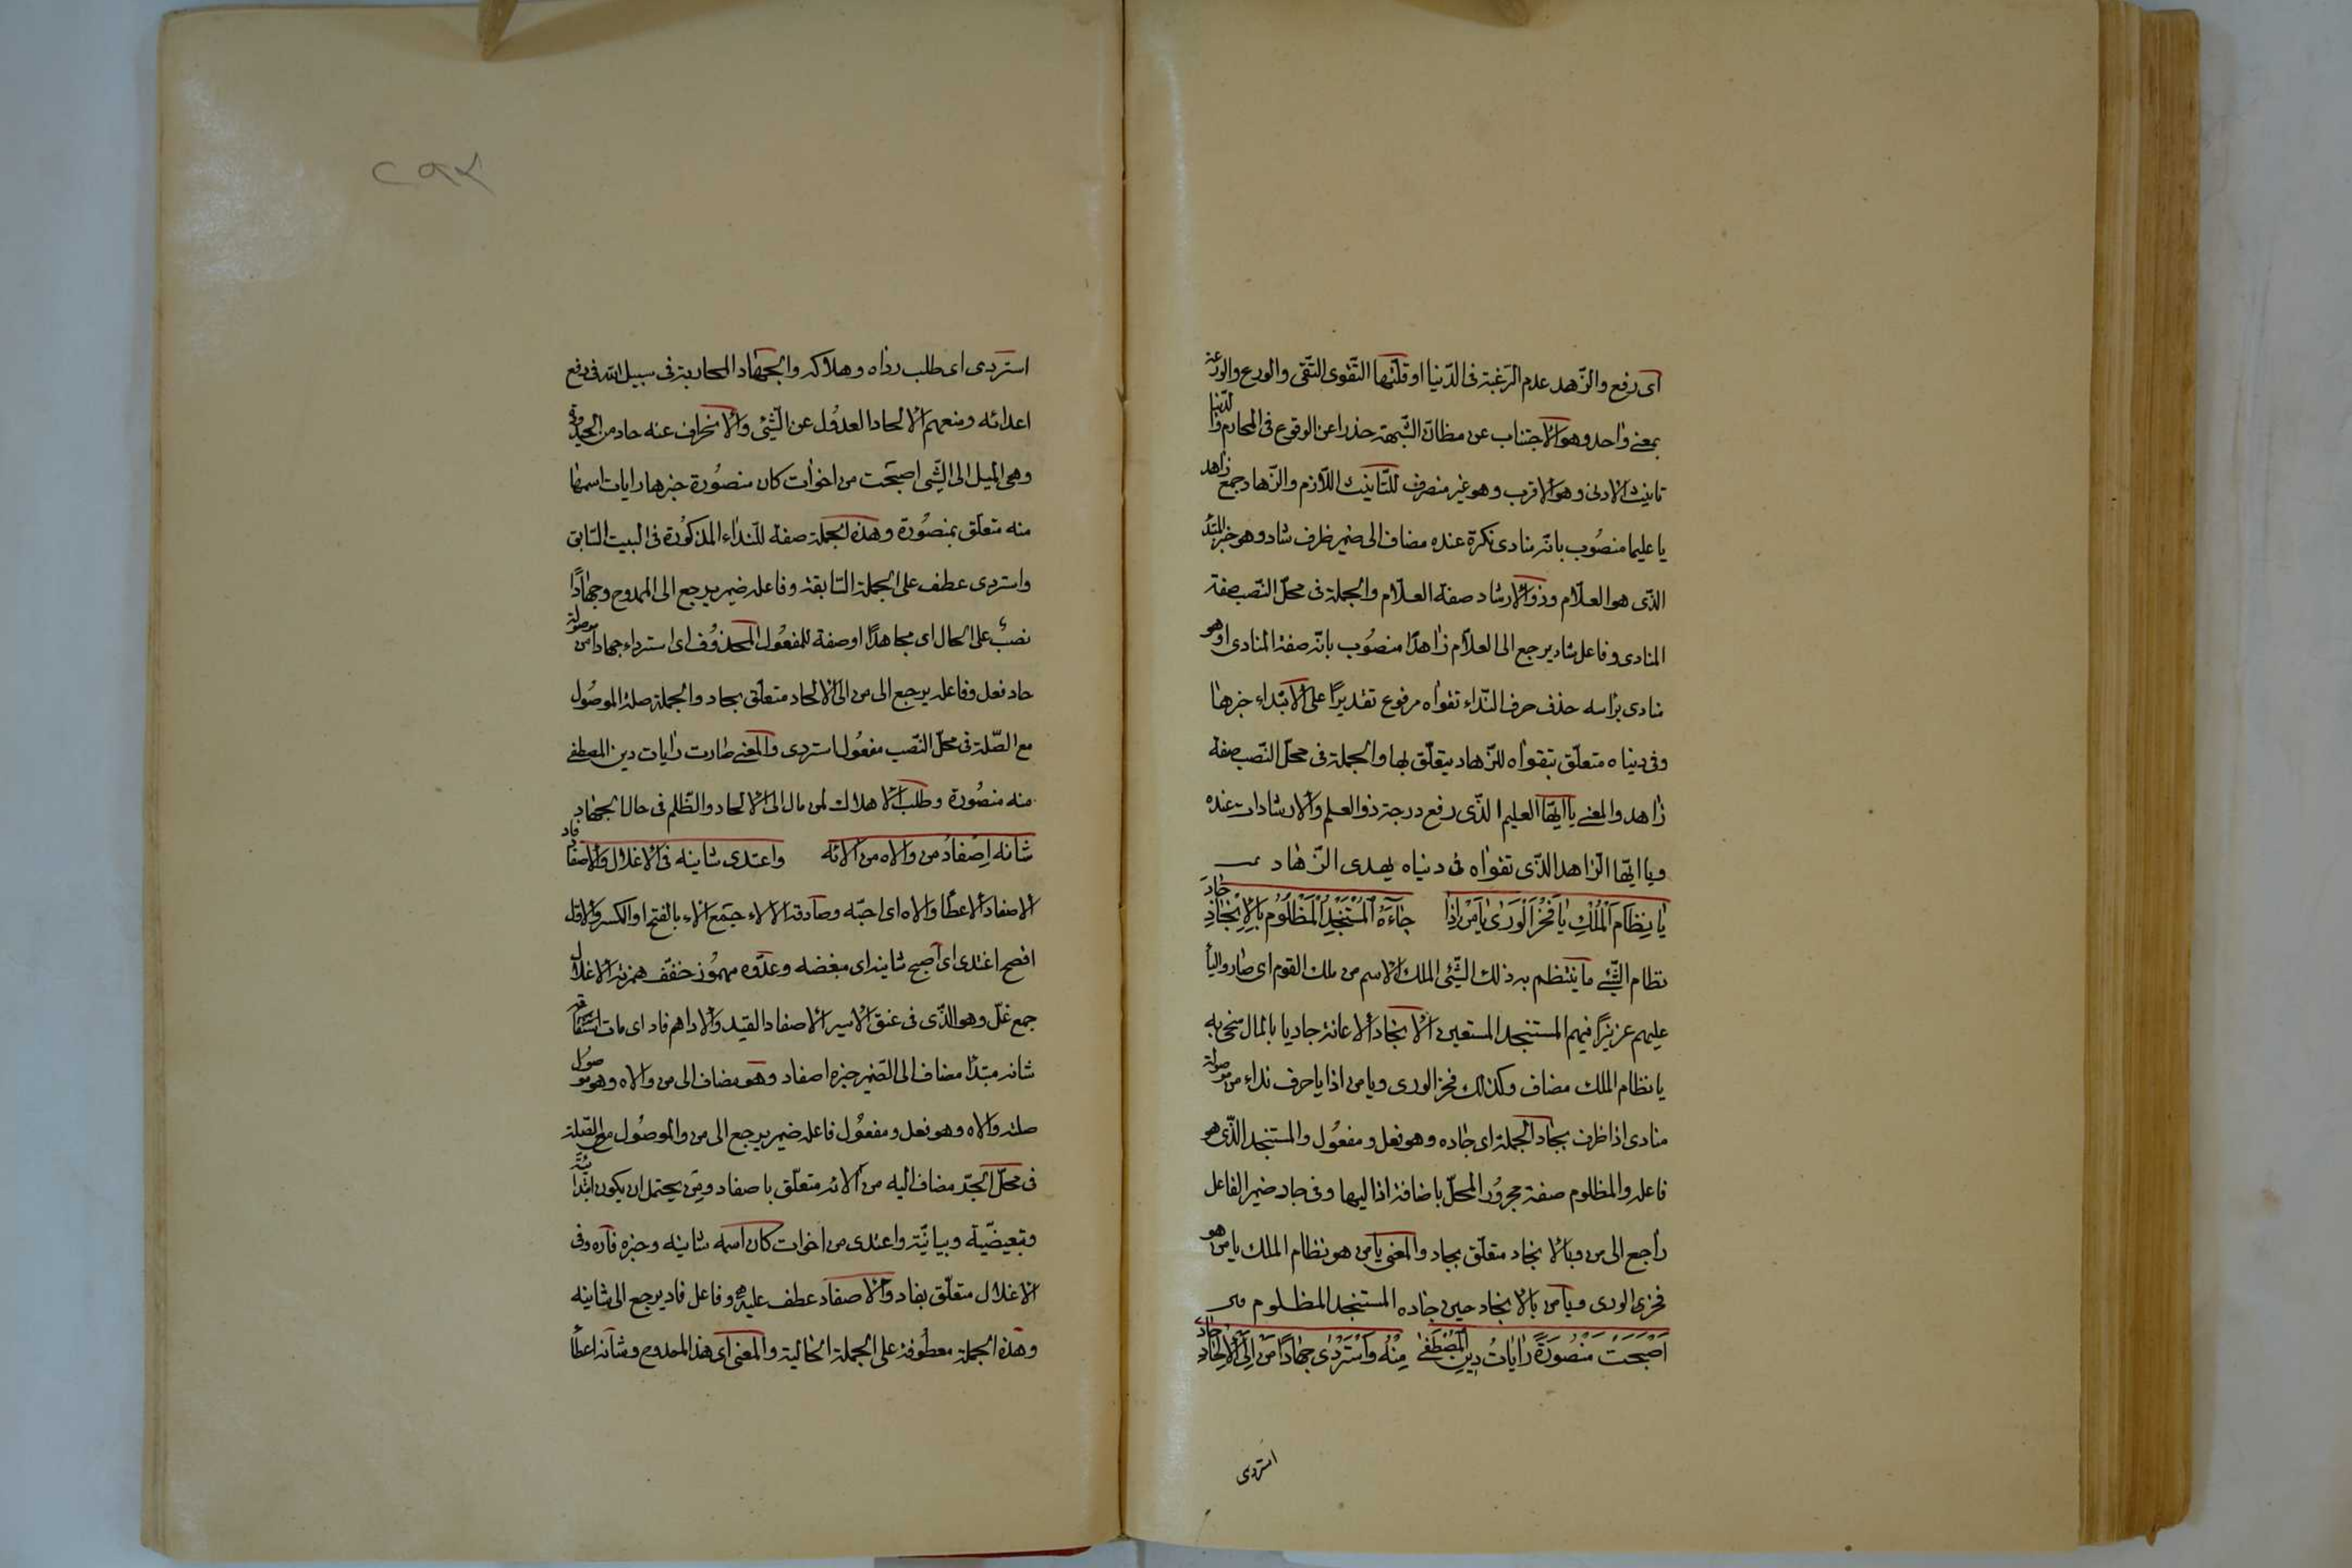 اى رفع والزّهد عدم الرّغبة فى الدّنيا او قلّتها التّقوى التّقى والورع والورعة
بمعنى واحد وهو الاجتناب عن مظانّ الشّبهة حذرا عن الوقوع فى المحارم والدّنيا
تانيث الادنى وهو الاقرب وهو غير منصرف للتّانيث اللّازم والزّهاد جمع زاهد
يا عليما منصُوب بانّه منادى نكرة عنده مضاف الى ضمير ظرف شاد وهو خبر المبتدأ
الذّى هو العلّام وذو الارشاد صفة العلّام والجملة فى محلّ النّصب صفة
المنادى وفاعل شاد يرجع الى العلّام زاهدًا منصُوب بانّه صفة المنادى او هو
منادى براسه حذف حرف النّداء تقواه مرفوع تقديرًا على الابتداء خبرها
وفى دنياه متعلّق بتقواه للزّهاد يتعلّق بها والجملة فى محلّ النّصب صفة
زاهد والمعنى يا ايّها العليم الذّى رفع درجة ذو العلم والارشادات عنده
ويا ايّها الزاهد الذّى تقواه فى دنياه يهدى الزّهاد
يا نِظَامَ الْمُلْكِ يا فَخْرَ الْوَرَىٰ يا مَنْ اِذَا جَاءَهُ الْمُسْتَنْجِدُ الْمَظْلُومُ بِالْاِنْجَادِ جَادَ
نظام الشّيئ ما ينتظم به ذلك الشّيئ الملك الاسم من ملك القوم اى صار واليأ
عليهم عزيزًا فيهم المستنجد المستعين الانجاد الاعانة جاد يا بالمال سخى به
يا نظام الملك مضاف وكذلك فخر الورى ويا من اذا يا حرف نداء من موصولة
منادى اذا ظرف بجاد الجملة اى جاده وهو فعل ومفعُول والمستنجد الذّى هو
فاعله والمظلوم صفته مجرُور المحلّ باضافة اذا اليها وفى جاد ضمير الفاعل
راجع الى من وبالانجاد متعلّق بجاد والمعنى يا من هو نظام الملك يا من هو
فخرى الورى ويا من بالانجاد حين جاده المستنجد المظلوم
اَصْبَحَتْ مَنْصُورَةً رَايَاتُ دِينِ الْمُصْطَفىٰ مِنْهُ وَاسْتَرْدىٰ جِهَادًا مَنْ اِلَى الْاِلْحَادِ حَادَ
استردى
٢٩٢
استردى اى طلب رداه وهلاكه والجهاد المحاربة فى سبيل الله فى دفع
اعدائه ومنعهم الالحاد العدُول عن الشّيئ والانحراف عنه حاد من الحيدوفة
وهى الميل الى الشّيى اصبحت من اخوات كان منصُورة خبرها رايات اسمها
منه متعلّق بمنصُورة وهذه الجملة صفة للنّداء المذكُورة فى البيت السّابق
واستردى عطف على الجملة السّابقة وفاعله ضمير يرجع الى الممدوح وجهادًا
نصبٌ على الحال اى مجاهدًا او صفة للمفعُول المحذوُف اى استرداء جهادا من موصولة
حاد فعل وفاعله يرجع الى من الى الالحاد متعلّق بحاد والجملة صلة الموصُول
مع الصّلة فى محلّ النّصب مفعُول استردى والمعنى صارت رايات دين المصطفى
منه منصُورة وطلب الاهلاك لمن مال الى الالحاد والظّلم فى حال الجهاد
شانه اِصفادُ من والاه من آلائه واعتدى شاينه فى الاغلال والاصفاد فاد
الاصفاد الاعطا والاه اى احبّه وصادقه الالاء جمع الاء بالفتح او الكسر والاوّل
افصح اغتدى اى اصبح شاينه اى مبغضه وعدّوه مهمُوز خفّف همزته الاغلال
جمع غلّ وهو الذّى فى عنق الاسير الاصفاد القيد والاداهم فاد اى مات
شانه مبتدأ مضاف الى الضّمير خبره اصفاد وهو مضاف الى من والاه وهو موصُول
صلته والاه وهو فعل ومفعُول فاعله ضمير يرجع الى من والموصُول مع الصّلة
فى محلّ الجرّ مضاف اليه من آلائه متعلّق باصفاد ومِن يحتمل ان يكون ابتدائيّة
وتبعيضّية وبيانيّة واعتدى من اخوات كان اسمه شاينه وخبره فاده وفى
الاغلال متعلّق بفاد والاصفاد عطف عليه وفاعل فاد يرجع الى شاينه
وهذه الجملة معطُوفة على الجملة الحالية والمعنى اى هذا الممدوح وشانه اعطأ